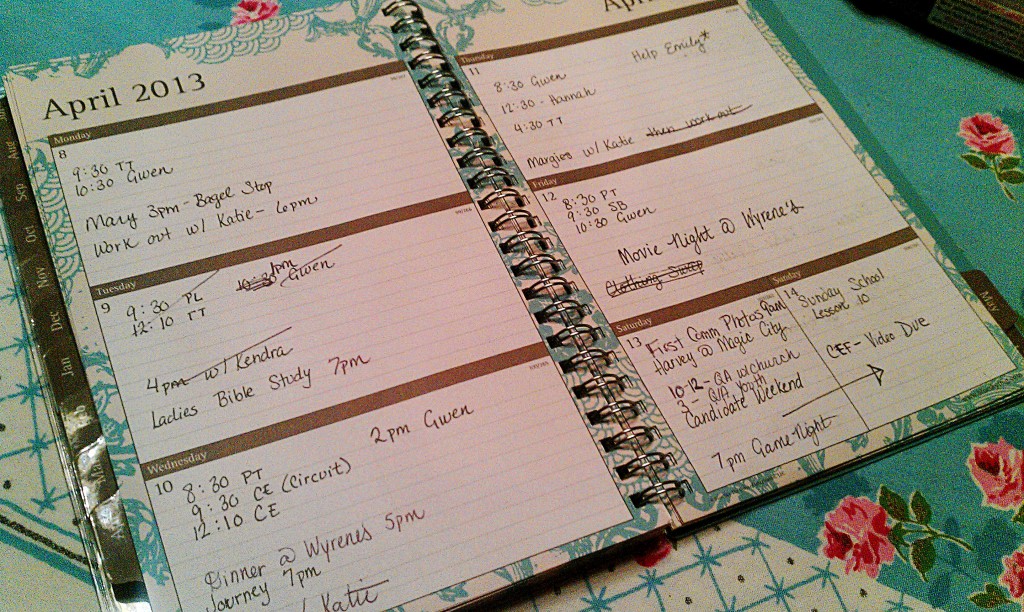 April 2013
Monday
8
9:30 TT
10:30 Gwen
Mary 3pm - Bagel Stop
Work out w/ Katie - 6pm
Tuesday
9
9:30 PL
12:10 TT
10:30
1pm
Gwen
4pm w/ Kendra
Ladies Bible Study 7pm
Wednesday
10
2pm Gwen
8:30 PT
9:30 CE (Circuit)
12:10 CE
Dinner @ Wyrene's 5pm
Journey 7pm
w/ Katie
Thursday
11
Help Emily*
8:30 Gwen
12:30 - Hannah
4:30 TT
Margies w/ Katie then work out
Friday
12
8:30 PT
9:30 SB
10:30 Gwen
Movie Night @ Wyrene's
Clothing Swap
Saturday
13
First Comm Photos
Harvey @ Magic City
10-12 - QA w/church
3 - Q/A Youth
Candidate Weekend
7pm Game Night
Sunday
14
Sunday School
Lesson 10
CEF - Video Due
Aug
Sep
Oct
Nov
Dec
Jan
May